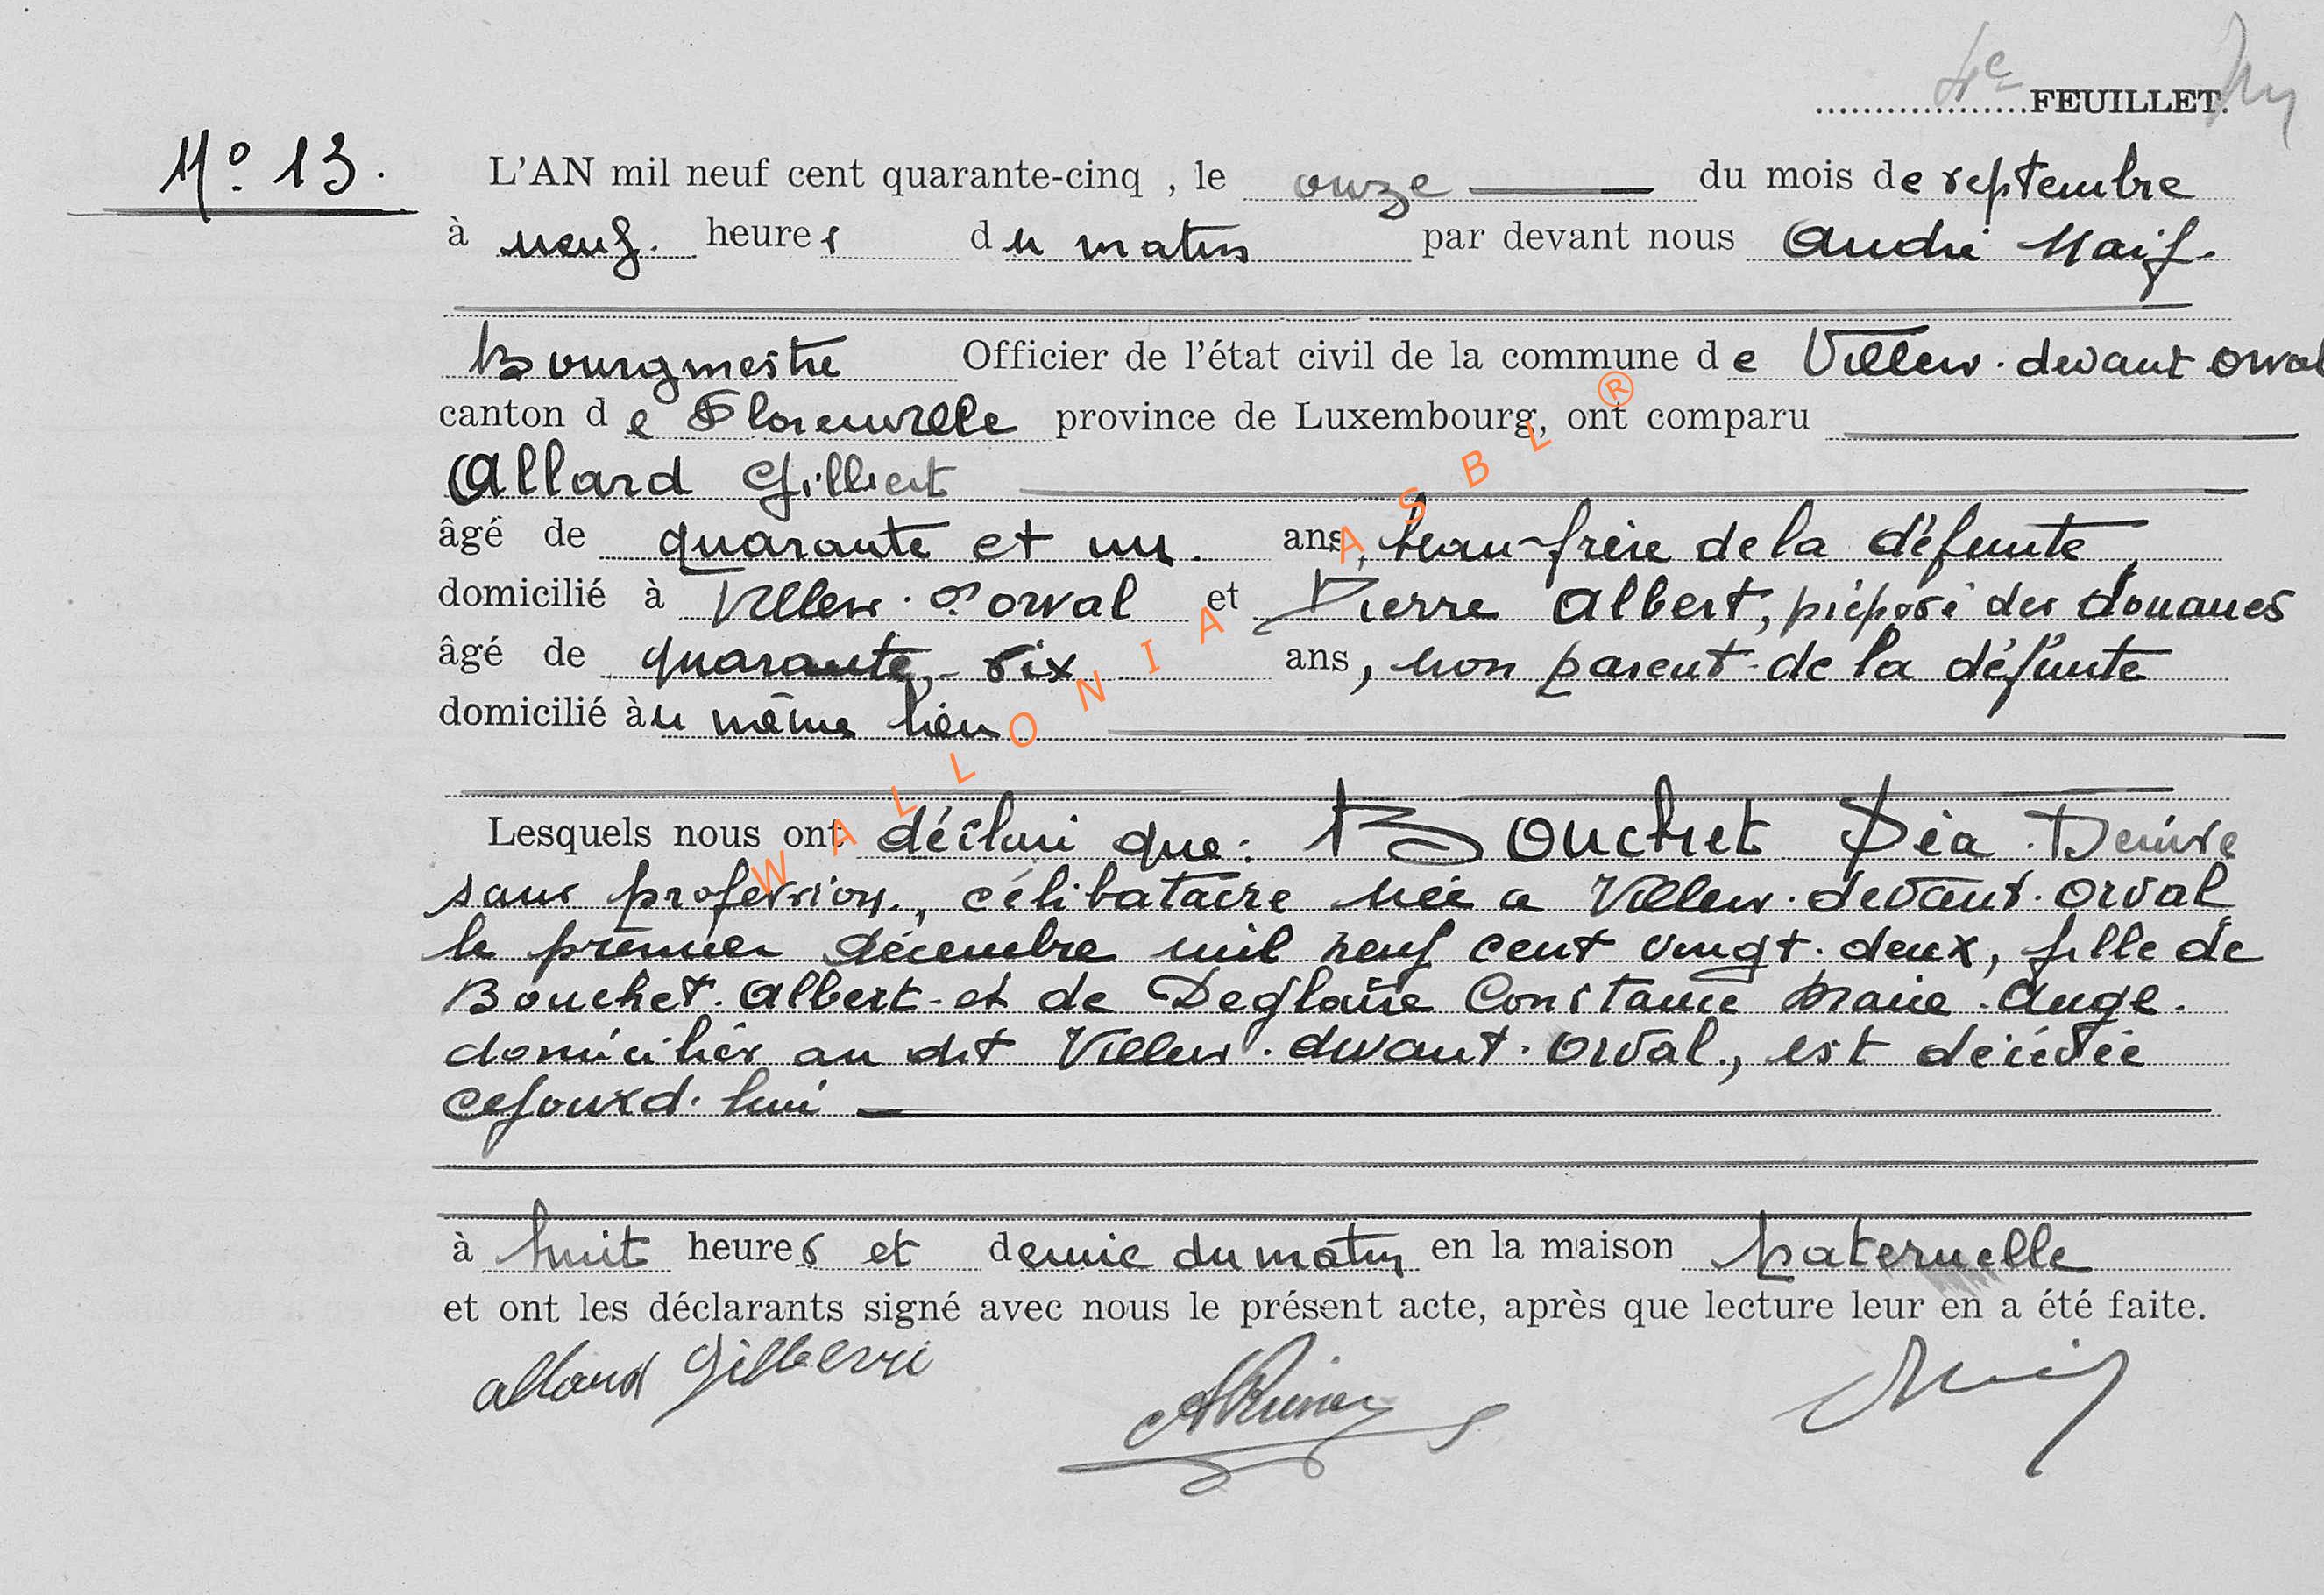 4e FEUILLET.
No 13.
L'AN mil neuf cent quarante-cinq , le onze du mois de septembre
à neuf. heures du matin par devant nous André Naif.
Bourgmestre Officier de l'état civil de la commune de Villers-devant Orval
canton de Florenville province de Luxembourg, ont comparu
Allard Gilbert
âgé de quarante et un. ans, beau-frère de la défunte,
domicilié à Villers-dt orval et Pierre Albert, préposé des douanes
âgé de quarante-six ans, non parent de la défunte
domicilié au même lieu
Lesquels nous ont déclaré que: Bouchet Déa Denise
sans profession, célibataire née a Villers-devant-Orval
le premier décembre mil neuf cent vingt-deux, fille de
Bouchet Albert et de Deglaire Constance Marie-Ange.
domiciliés au dit Villers-devant-Orval, est décédée
cejourd'hui
à huit heures et demie du matin en la maison paternelle
et ont les déclarants signé avec nous le présent acte, après que lecture leur en a été faite.
allard Gilbert
WALLONIA ASBL ®